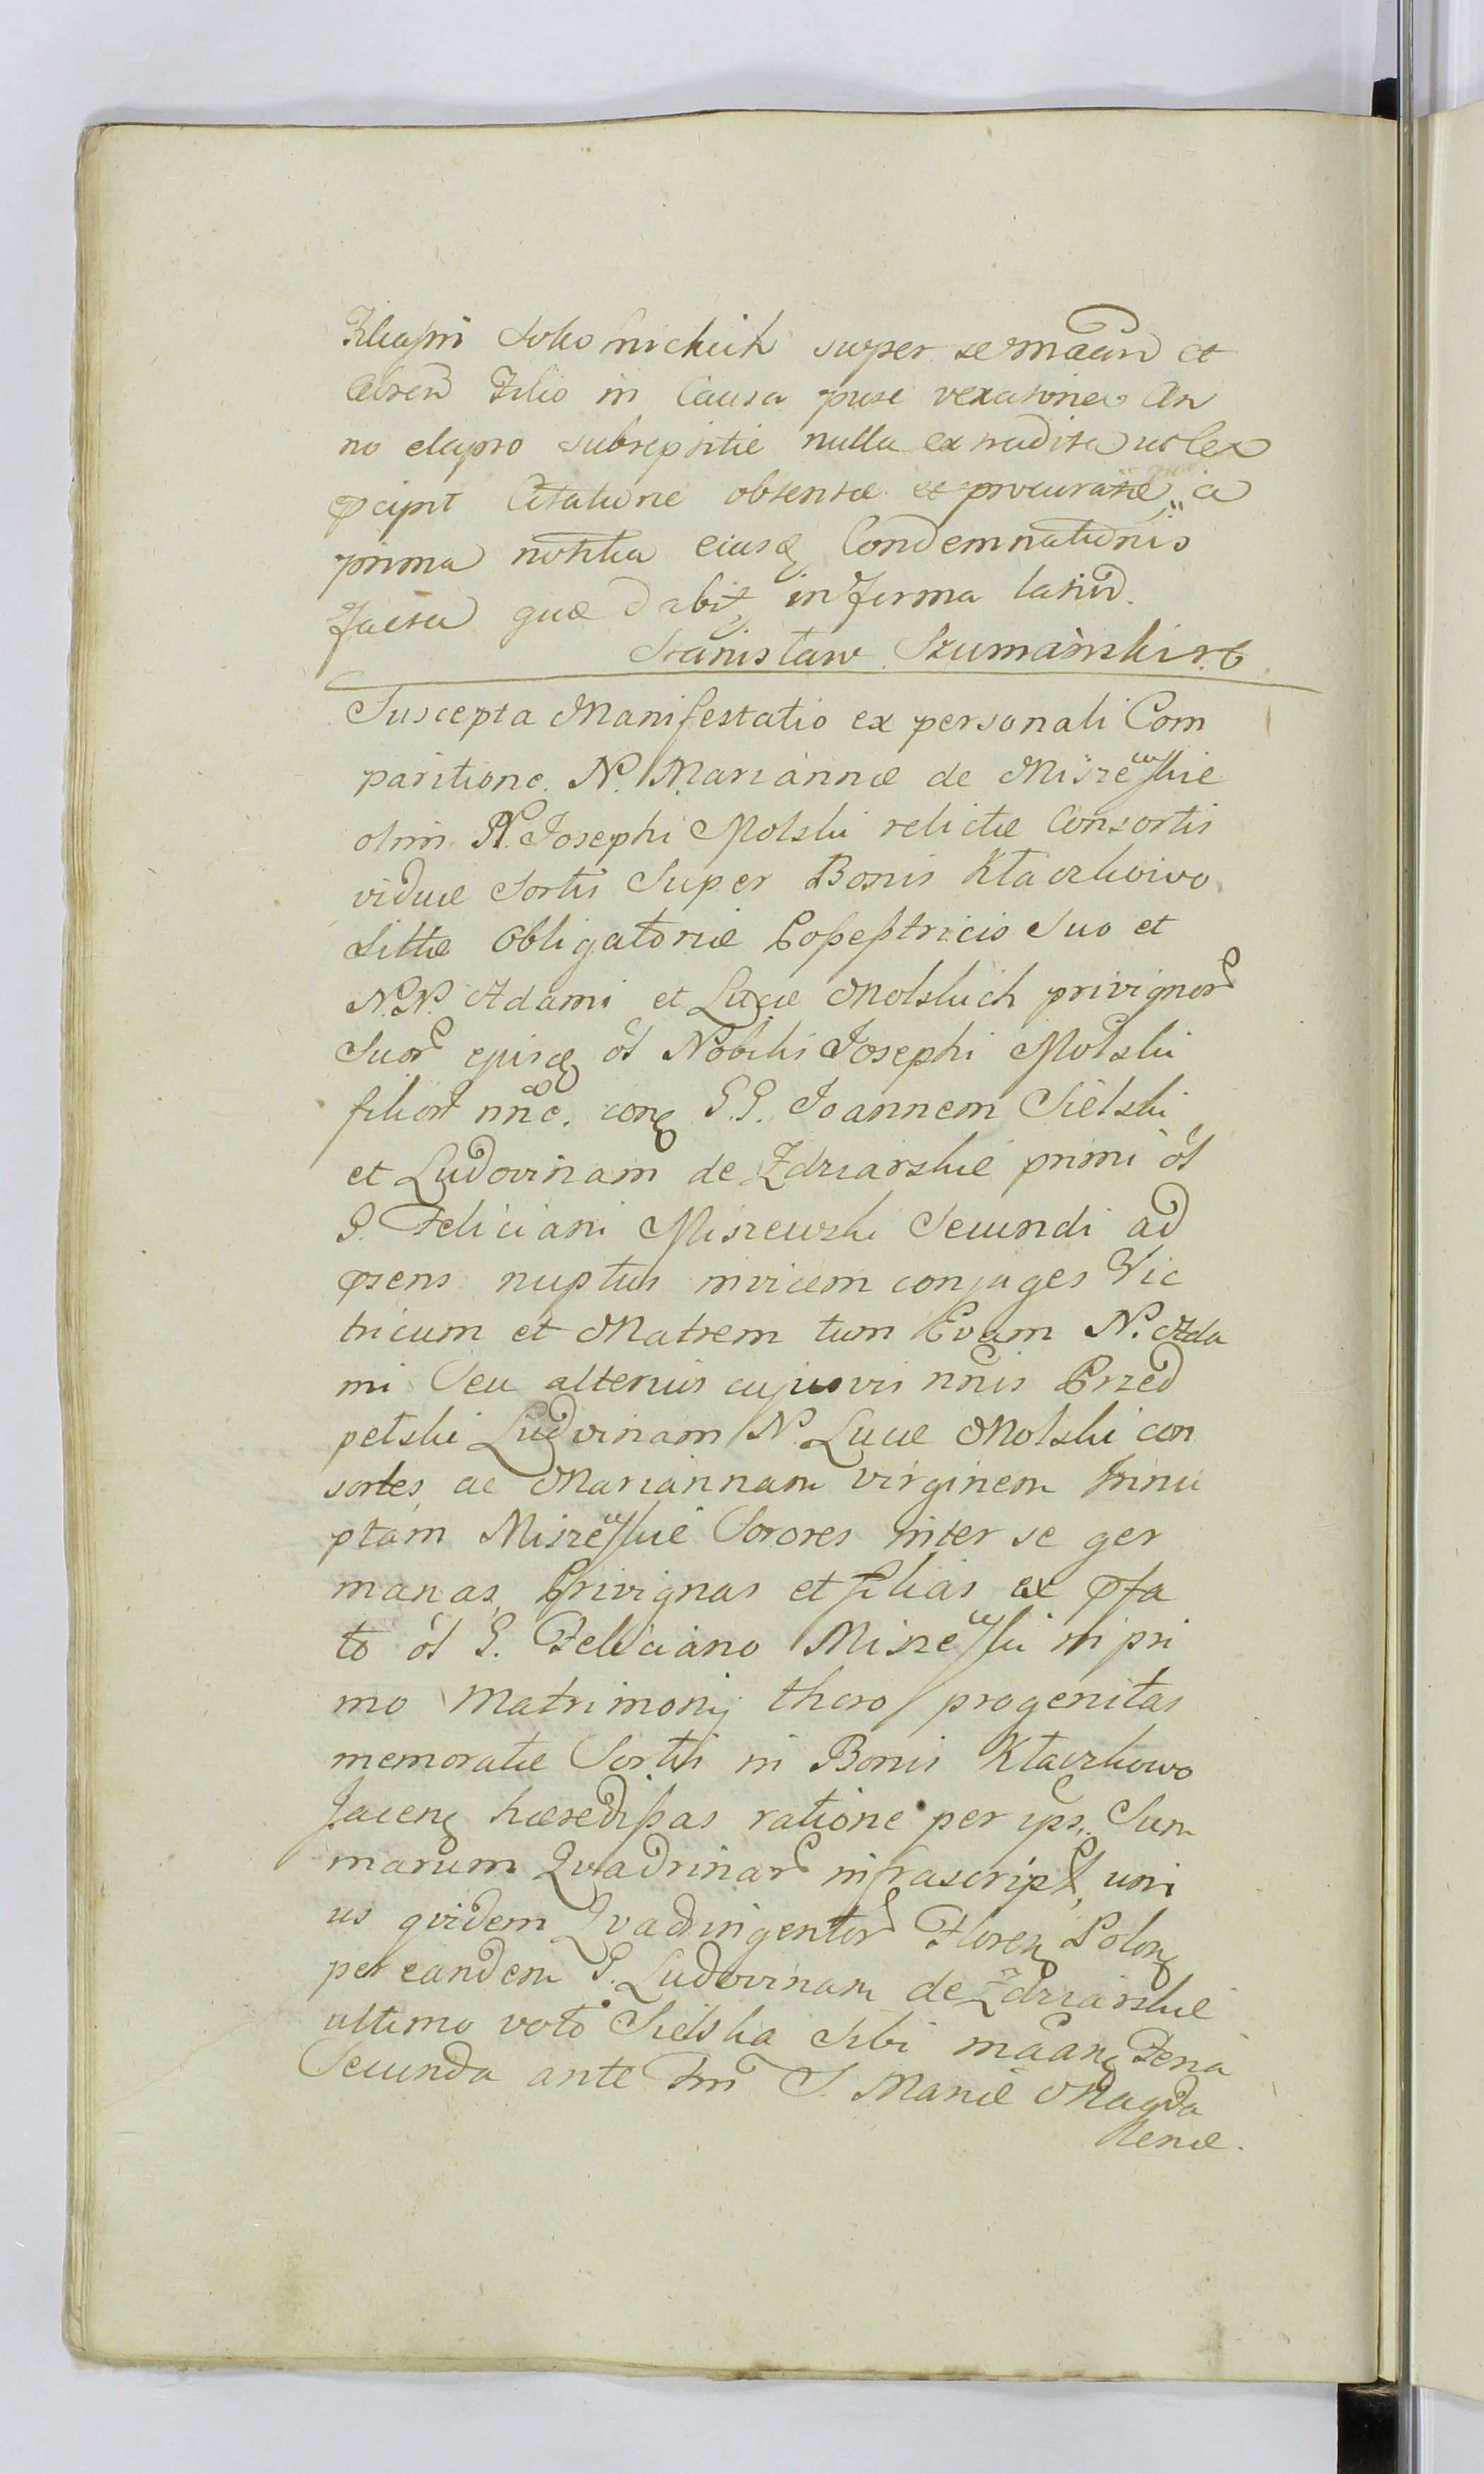 super se et
Filio in Causa vexationis An
no elapso subreptitie nulla extradita ut lex
Citatione obtentæ procuratæ a
prima notitia Condemnationis
facta quæ dabit in forma latiori.
Stanisław Szumański
Suscepta Manifestatio ex personali Com
paritione N. Mariannæ de Miszewskie
olim N. Josephi Molski relictæ Consortis
viduæ Sortis Super Bonis Kłaczkowo
Sittæ Obligatoriæ Poßeßtricis Suo et
N.N. Adami et Lucæ Molskich privignor
Suor ejusq ol Nobilis Josephi Molski
filior nnē. conq G.G. Joannem Sielski
et Ludovinam de Zdziarskie primi ol
G. Feliciani Miszewski Secundi ad
prsens nuptus invicem conjuges Vic
tricum et Matrem tum Evam N. Ada
mi Seu alterius cujusvis nnis Przed
petski Ludvinam N. Lucæ Molski con
sortes, ac Mariannam virginem Innu
ptam Miszewskie Sorores inter se ger
manas, Privignas et filias ex pfa
to ol G. Feliciano Miszewski in pri
mo Matrimonij thoro progenitas
memoratæ Sortis in Bonis Kłaczkowo
Jacenq hæredißas ratione per ips. Sum
marum Qvadrinar infrascript, uni
us qvidem Qvadringentor Floren Polonq
per eandem G. Ludovinam de Zdziarskie
ultimo voto Sielska Sibi Feria
Secunda ante S. Mariæ Magda
lenæ.